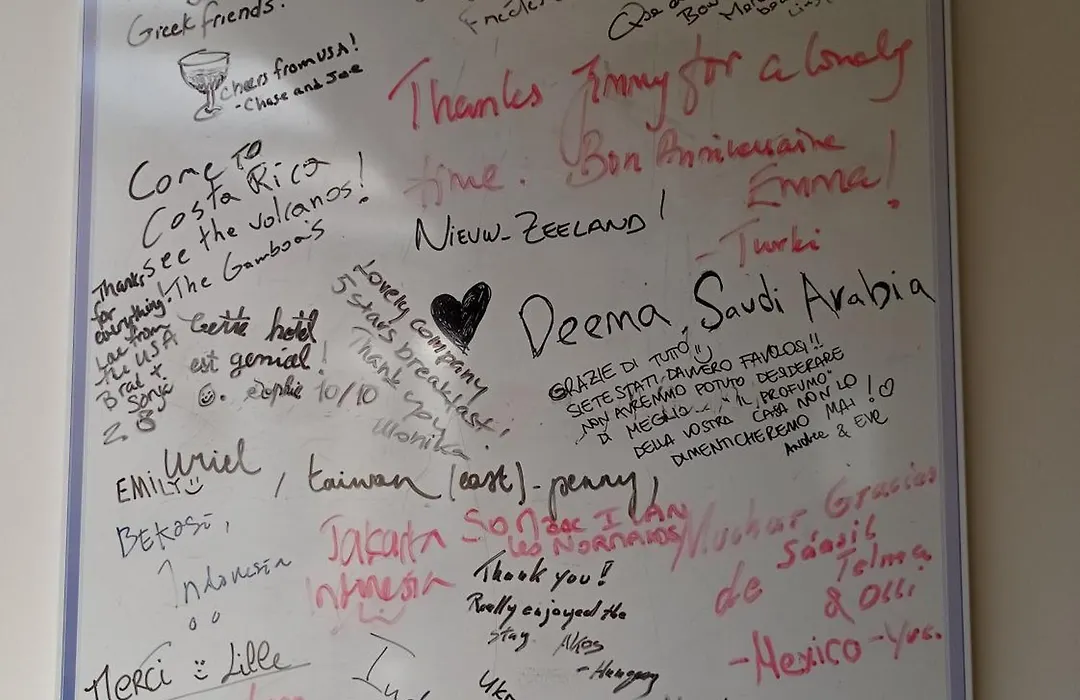 Greek friends.
Cheers from USA!
- Chase and Joe
Thanks Jimmy for a lovely
time. Bon Anniversaire
Emma!
- Turki
Come To
Costa Rica
see the volcanos!
The Gamboa's
NIEUW-ZEELAND!
Thanks
for
everything.
Love from
the USA
Brad +
Sonja
Cette hotel
est genial!
Sophie 10/10
Lovely company
5 stars breakfast!
Thank you
Monika
Deema, Saudi Arabia
GRAZIE DI TUTTO
SIETE STATI DAVVERO FAVOLOSI!!
NON AVREMMO POTUTO DESIDERARE
DI MEGLIO... "IL PROFUMO"
DELLA VOSTRA CASA NON LO
DIMENTICHEREMO MAI!
Andrea & EVE
Uriel
EMILY
, taiwan (east) - penny,
BEKASI,
Indonesia
Jakarta
Intnesia
Thank you!
Really enjoyed the
stay
Akos
- Hungary
Muchas Gracias
de Sáasil
Telma
& Olli
- Mexico - Yuc.
Merci Lille